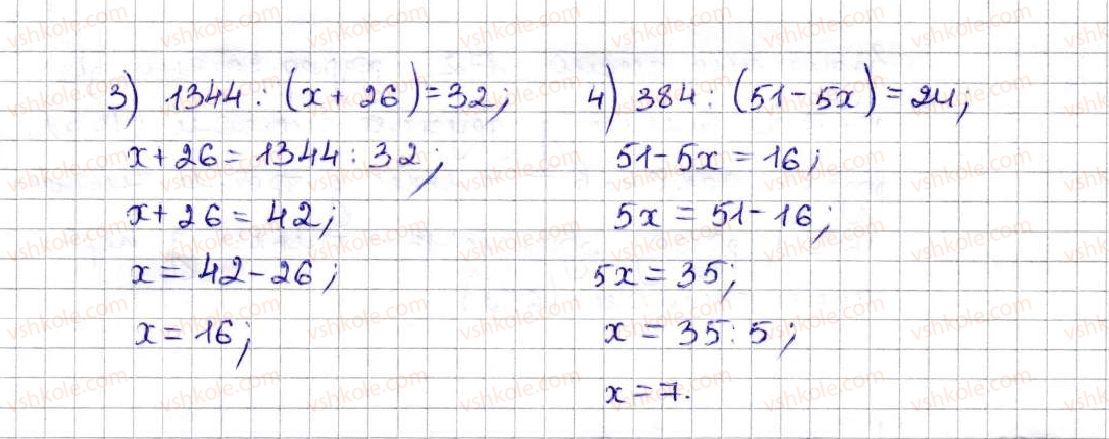 3) 1344 : (x + 26) = 32;
x + 26 = 1344 : 32;
x + 26 = 42;
x = 42 - 26;
x = 16;
4) 384 : (51 - 5x) = 24;
51 - 5x = 16;
5x = 51 - 16;
5x = 35;
x = 35 : 5;
x = 7.
vshkole.com